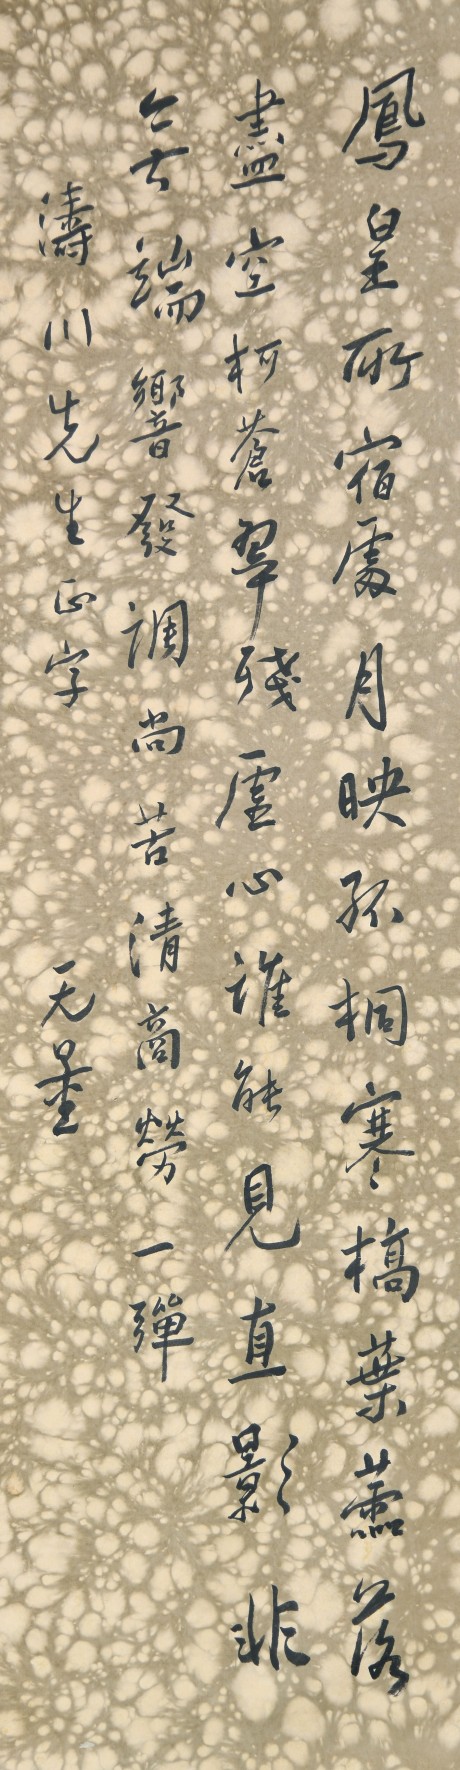 鳳皇所宿處月映孤桐寒槁葉蕭落
盡空柯蒼翠殘虛心誰能見直影非
無端響發調尚苦清商勞一彈
濤川先生正字 无量